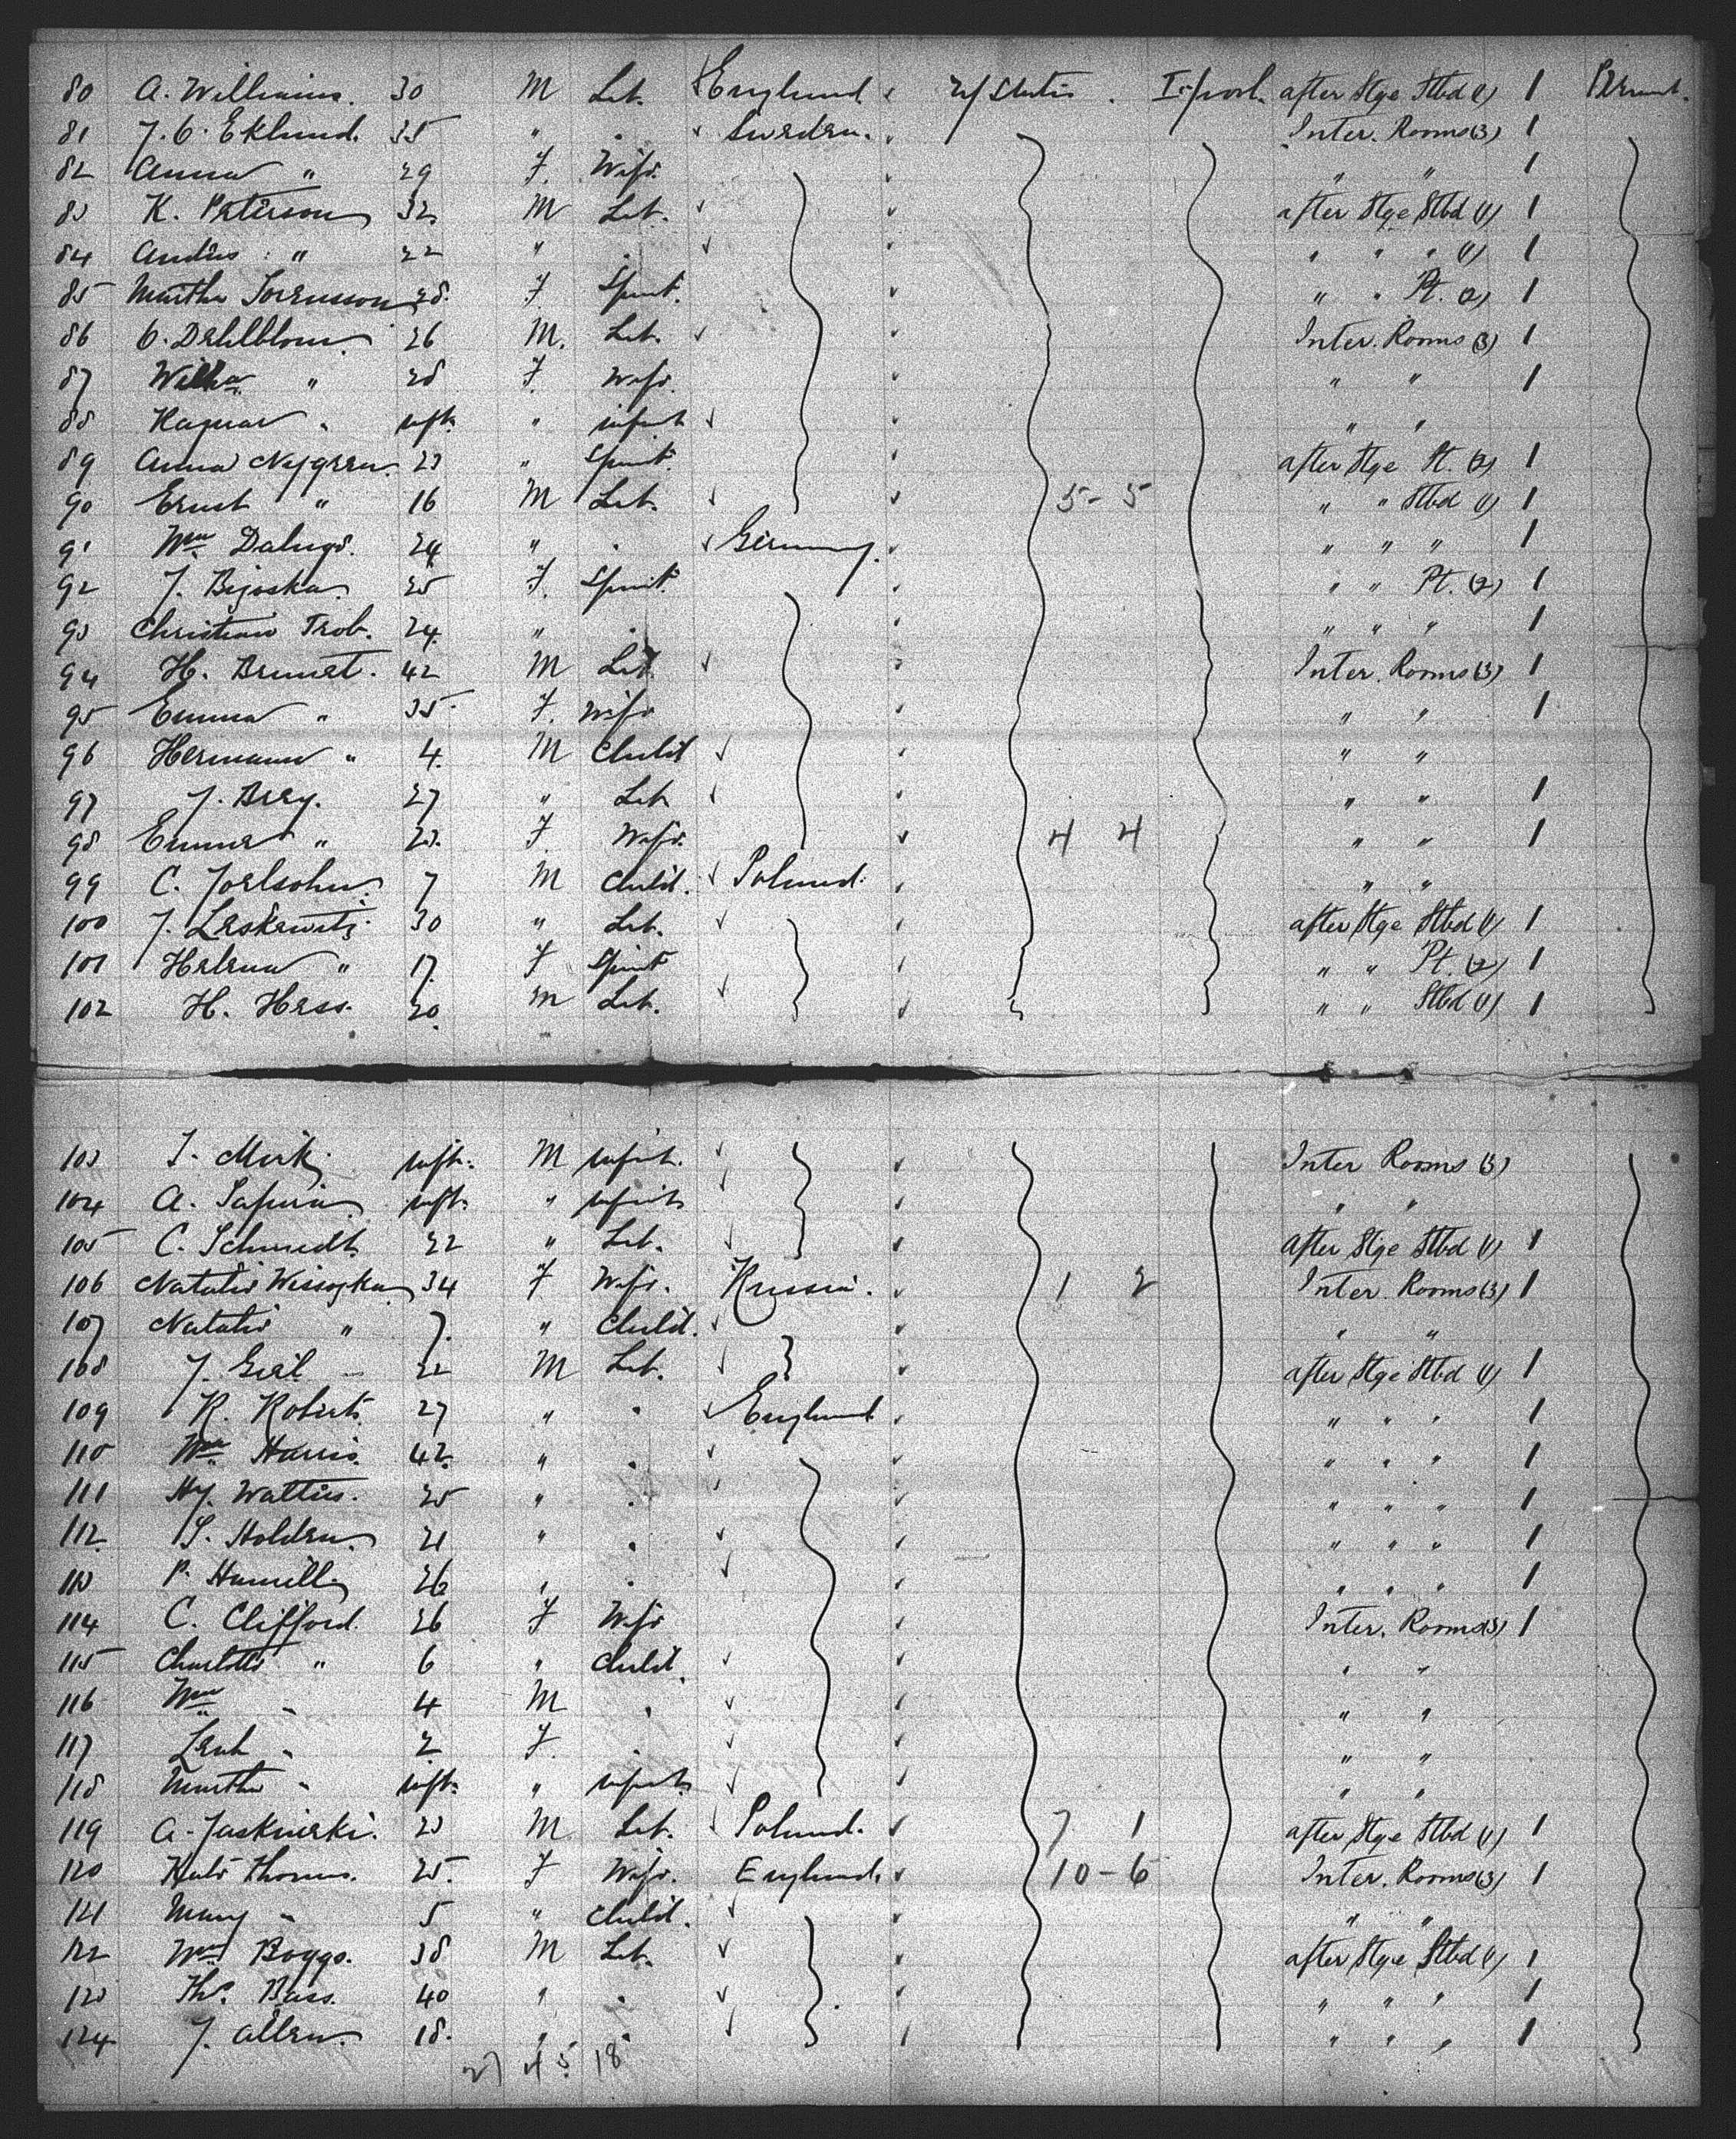 80 A. Williams. 30 M Lab. England U/States. L'pool. after Stge Stbd (1) 1 Perm't.
81 J. C. Eklund. 35 " . Sweden. Inter. Rooms (3) 1
82 Anna " 29 F. Wife. " " 1
83 K. Paterson 32 M Lab. after Stge Stbd (1) 1
84 " 22 " . " " " (1) 1
85 Martha Sorensson 28. F. Spinst. " " Pt. (2) 1
86 C. Dahlblom. 26 M. Lab. Inter. Rooms (3) 1
87 " 28 F. Wife. " " 1
88 Ragnar " inft. " infant " "
89 Anna Nygren 23 " Spinst. after Stge Pt. (2) 1
90 Ernst " 16 M Lab. 5 - 5 " " Stbd (1) 1
91 Wm 24 " . Germany. " " " 1
92 J. 25 F. Spinst. " " Pt. (2) 1
93 Christian Trob. 24 " . " " " 1
94 H. 42 M Lab. Inter. Rooms (3) 1
95 Emma " 35. F. Wife " " 1
96 Hermann " 4. M Child " "
97 J. Berg. 27 " Lab " " 1
98 Emma " 23. F. Wife. 4 4 " " 1
99 C. Joelsohn. 7 M Child. Poland. " "
100 J. 30 " Lab. after Stge Stbd (1) 1
101 Helena " 17. F Spinst " " Pt. (2) 1
102 H. Hess. 20. M Lab. " " Stbd (1) 1
103 inft. M infant. Inter Rooms (3)
104 A. inft. " infant " "
105 C. Schmidt 22 " Lab. after Stge Stbd (1) 1
106 Natalie 34 F Wife. Russia. 1 2 Inter. Rooms (3) 1
107 Natalie " 7. " Child. " "
108 J. 22 M Lab. after Stge Stbd (1) 1
109 R. Roberts. 27 " . England " " " 1
110 Wm Harris. 42. " . " " " 1
111 Hy. 25 " . " " " 1
112. S. Holden. 21 " . " " " 1
113 P. Hamill 26 " . " " " 1
114 C. Clifford. 26 F Wife Inter. Rooms (3) 1
115 Charlotte " 6 " Child. " "
116 Wm " 4 M . " "
117 Leah " 2. F. . " "
118 Martha " inft. " infant. " "
119 A. Jaskinski. 23 M Lab. Poland. 7 1 after Stge Stbd (1) 1
120 Kate Thomas. 25. F Wife. England. 10 - 6 Inter. Rooms (3) 1
121 Mary " 5 " Child. " "
122 Wm Boggs. 38 M Lab. after Stge Stbd (1) 1
123 Ths. Bass. 40 " . " " " 1
124 J. Allen. 18. " . " " " 1
27 4 5 18